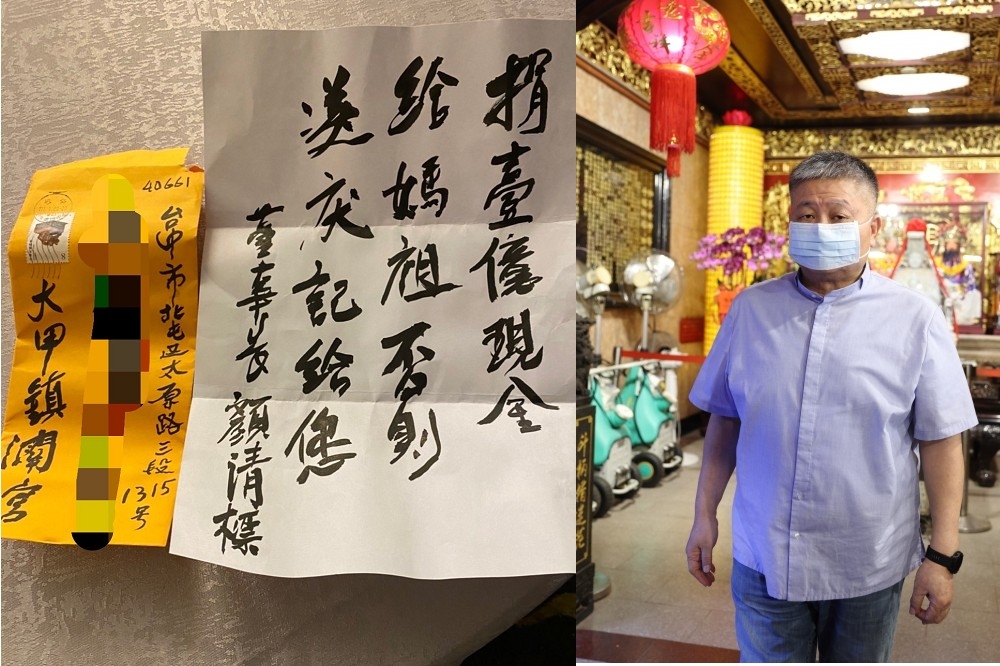 捐壹億現金
給媽祖否則
災厄記給您
董事長顏清標
40661
台中市北屯区太原路三段
1315
号
大甲鎮瀾宮